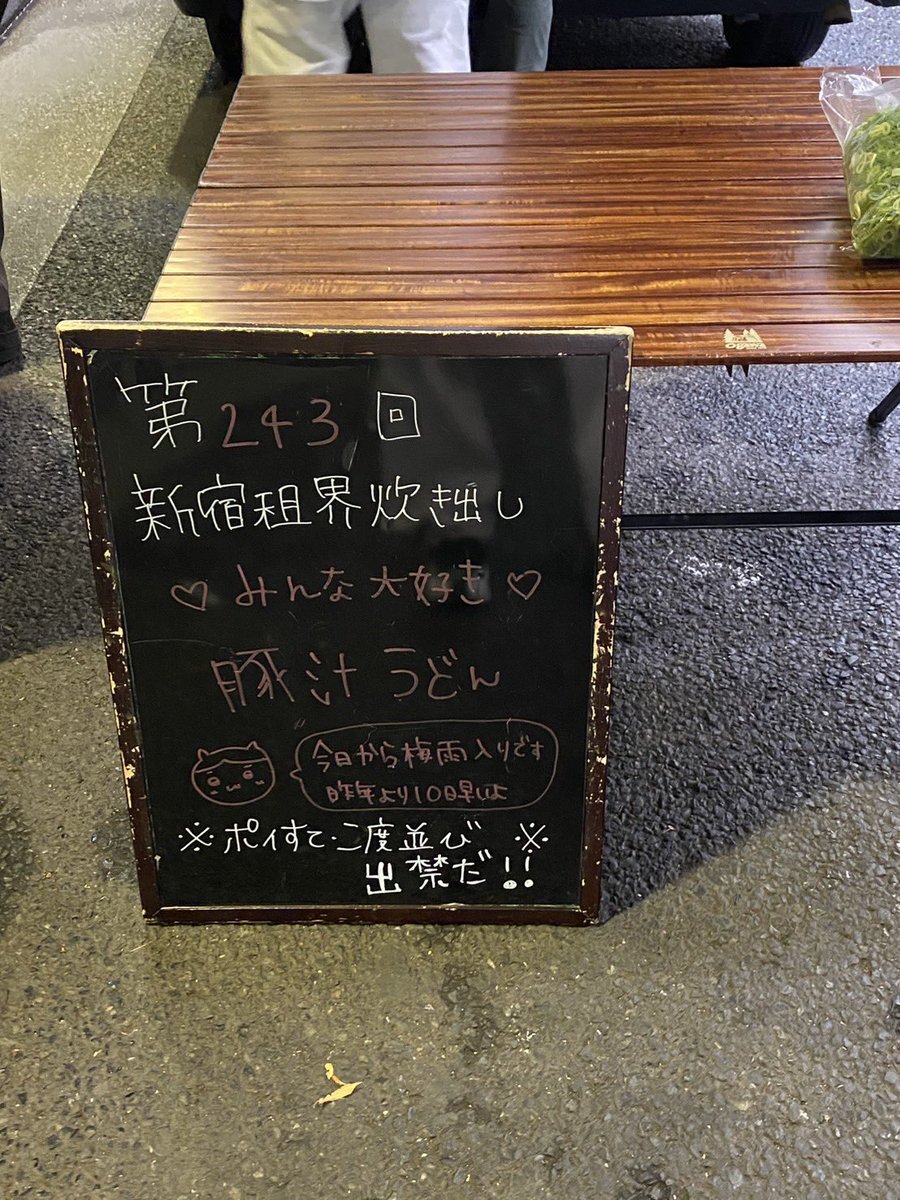 第243回
新宿租界炊き出し
♡ みんな大好き ♡
豚汁うどん
今日から梅雨入りです
昨年より10日早いよ
※ポイすて・二度並び ※
出禁だ!!